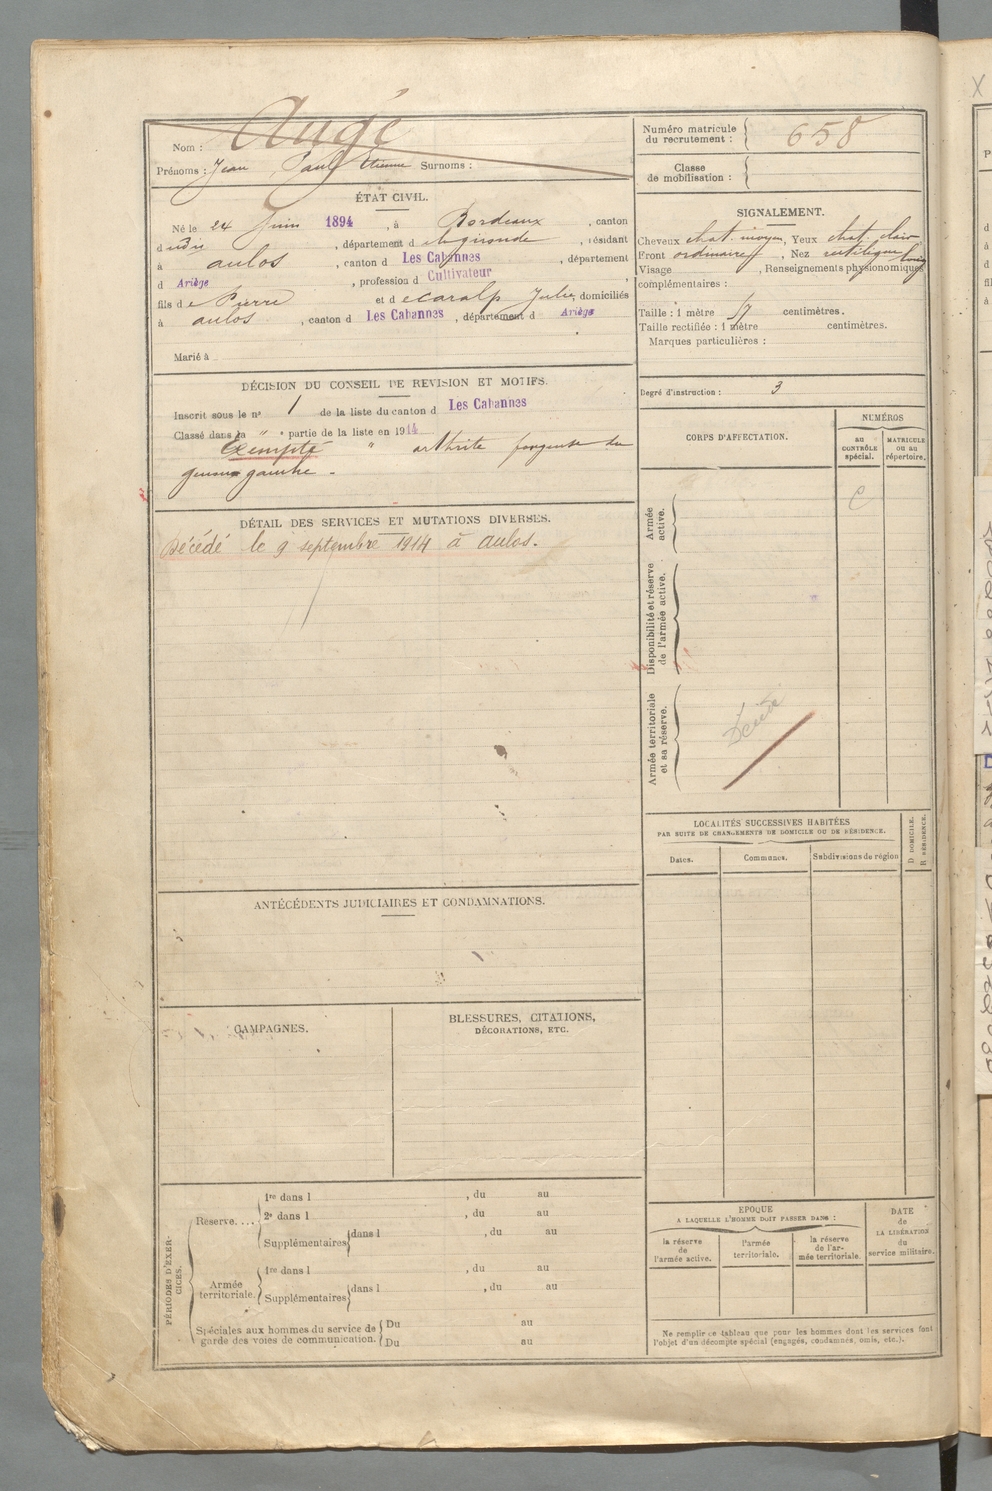 Nom : Augé
Prénoms : Jean Paul Etienne Surnoms :
Numéro matricule du recrutement : 658
Classe de mobilisation :
ÉTAT CIVIL.
Né le 24 Juin 1894, à Bordeaux, canton
d udit, département d e la gironde, résidant
à aulos, canton d Les Cabannes, département
d Ariège, profession d Cultivateur
fils de Pierre et d e caralp Julie, domiciliés
à aulos, canton d Les Cabannes, département d Ariège
Marié à
SIGNALEMENT.
Cheveux chat. moyen, Yeux chat. clair
Front ordinaire, Nez rectiligne
Visage long, Renseignements physionomiques
complémentaires :
Taille : 1 mètre 57 centimètres.
Taille rectifiée : 1 mètre centimètres.
Marques particulières :
DÉCISION DU CONSEIL DE REVISION ET MOTIFS.
Inscrit sous le n° 1 de la liste du canton d Les Cabannes
Classé dans la " " partie de la liste en 1914
Exempté " arthrite fongueuse du
genou gauche.
Degré d'instruction : 3
DÉTAIL DES SERVICES ET MUTATIONS DIVERSES.
Décédé le 9 septembre 1914 à aulos.
CORPS D'AFFECTATION.
NUMÉROS
au CONTRÔLE spécial.
MATRICULE ou au répertoire.
Armée active.
C
Disponibilité et réserve de l'armée active.
Armée territoriale et sa réserve.
LOCALITÉS SUCCESSIVES HABITÉES
PAR SUITE DE CHANGEMENTS DE DOMICILE OU DE RÉSIDENCE.
Dates.
Communes.
Subdivisions de région
D DOMICILE.
R RÉSIDENCE.
ANTÉCÉDENTS JUDICIAIRES ET CONDAMNATIONS.
CAMPAGNES.
BLESSURES, CITATIONS,
DÉCORATIONS, ETC.
PÉRIODES D'EXERCICES.
Réserve....
1re dans l , du au
2e dans l , du au
Supplémentaires dans l , du au
Armée territoriale.
1re dans l , du au
Supplémentaires dans l , du au
Spéciales aux hommes du service de garde des voies de communication.
Du au
Du au
EPOQUE
A LAQUELLE L'HOMME DOIT PASSER DANS :
la réserve de l'armée active.
l'armée territoriale.
la réserve de l'armée territoriale.
DATE
de
LA LIBÉRATION
du
service militaire.
Ne remplir ce tableau que pour les hommes dont les services font
l'objet d'un décompte spécial (engagés, condamnés, omis, etc.).